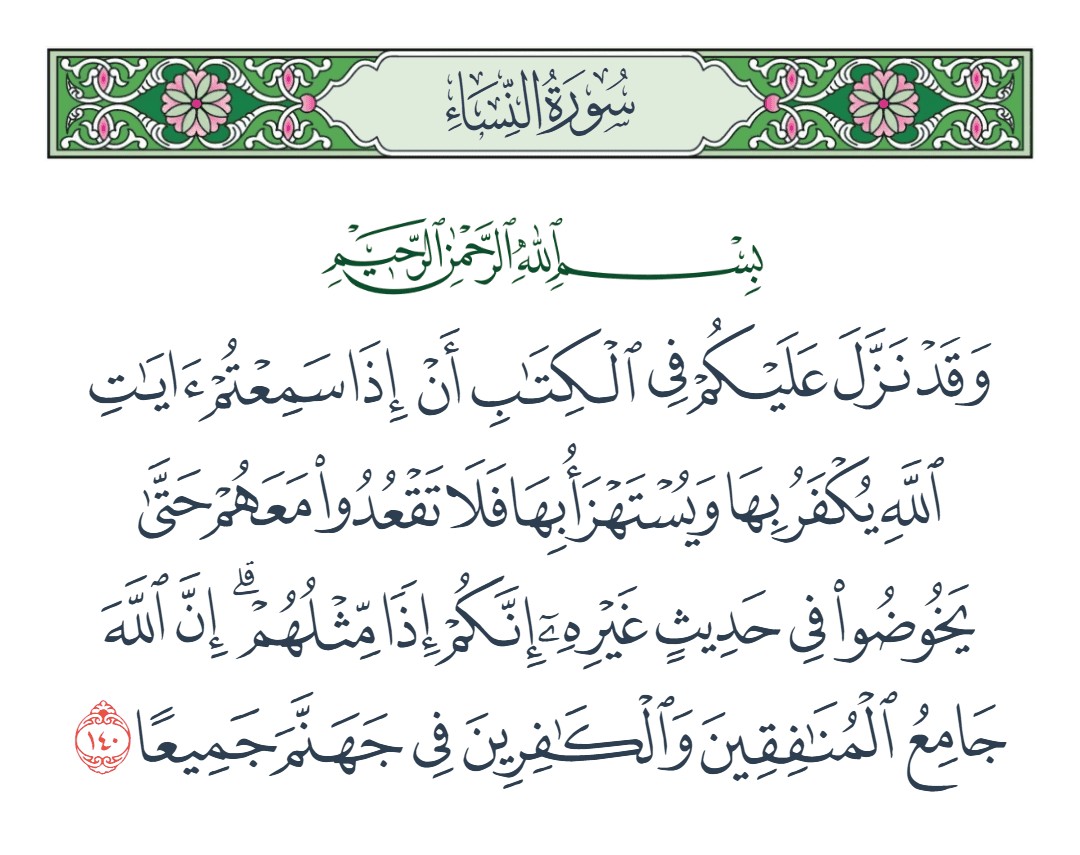 سُورَةُ النِّسَاءِ
بِسْمِ ٱللَّهِ ٱلرَّحْمَٰنِ ٱلرَّحِيمِ
وَقَدْ نَزَّلَ عَلَيْكُمْ فِى ٱلْكِتَٰبِ أَنْ إِذَا سَمِعْتُمْ ءَايَٰتِ
ٱللَّهِ يُكْفَرُ بِهَا وَيُسْتَهْزَأُ بِهَا فَلَا تَقْعُدُوا۟ مَعَهُمْ حَتَّىٰ
يَخُوضُوا۟ فِى حَدِيثٍ غَيْرِهِۦٓ ۚ إِنَّكُمْ إِذًا مِّثْلُهُمْ ۗ إِنَّ ٱللَّهَ
جَامِعُ ٱلْمُنَٰفِقِينَ وَٱلْكَٰفِرِينَ فِى جَهَنَّمَ جَمِيعًا ١٤٠